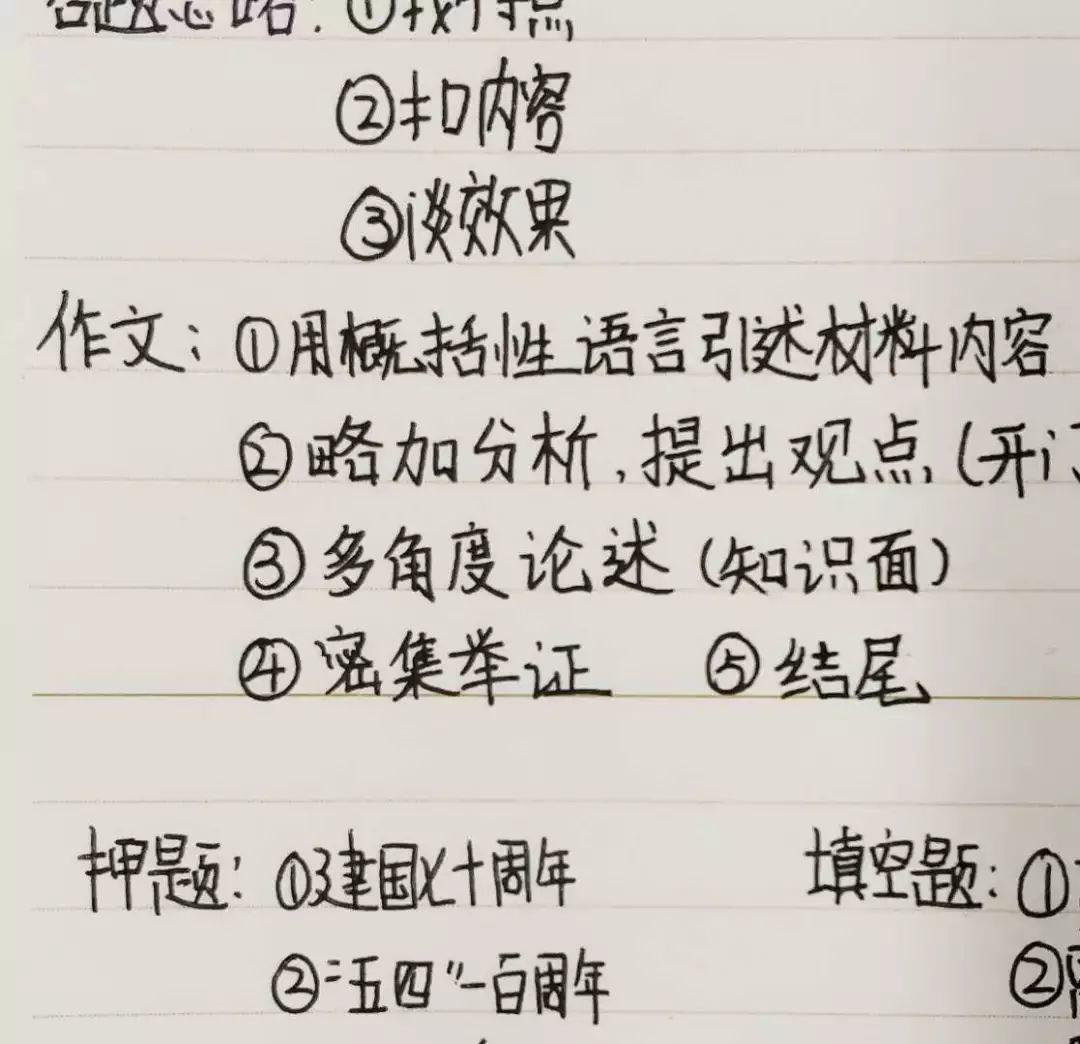 答题思路：①找特点
②扣内容
③谈效果
作文：①用概括性语言引述材料内容
②略加分析，提出观点（开门
③多角度论述（知识面）
④密集举证 ⑤结尾
押题：①建国七十周年 填空题：①
②“五四”一百周年 ②